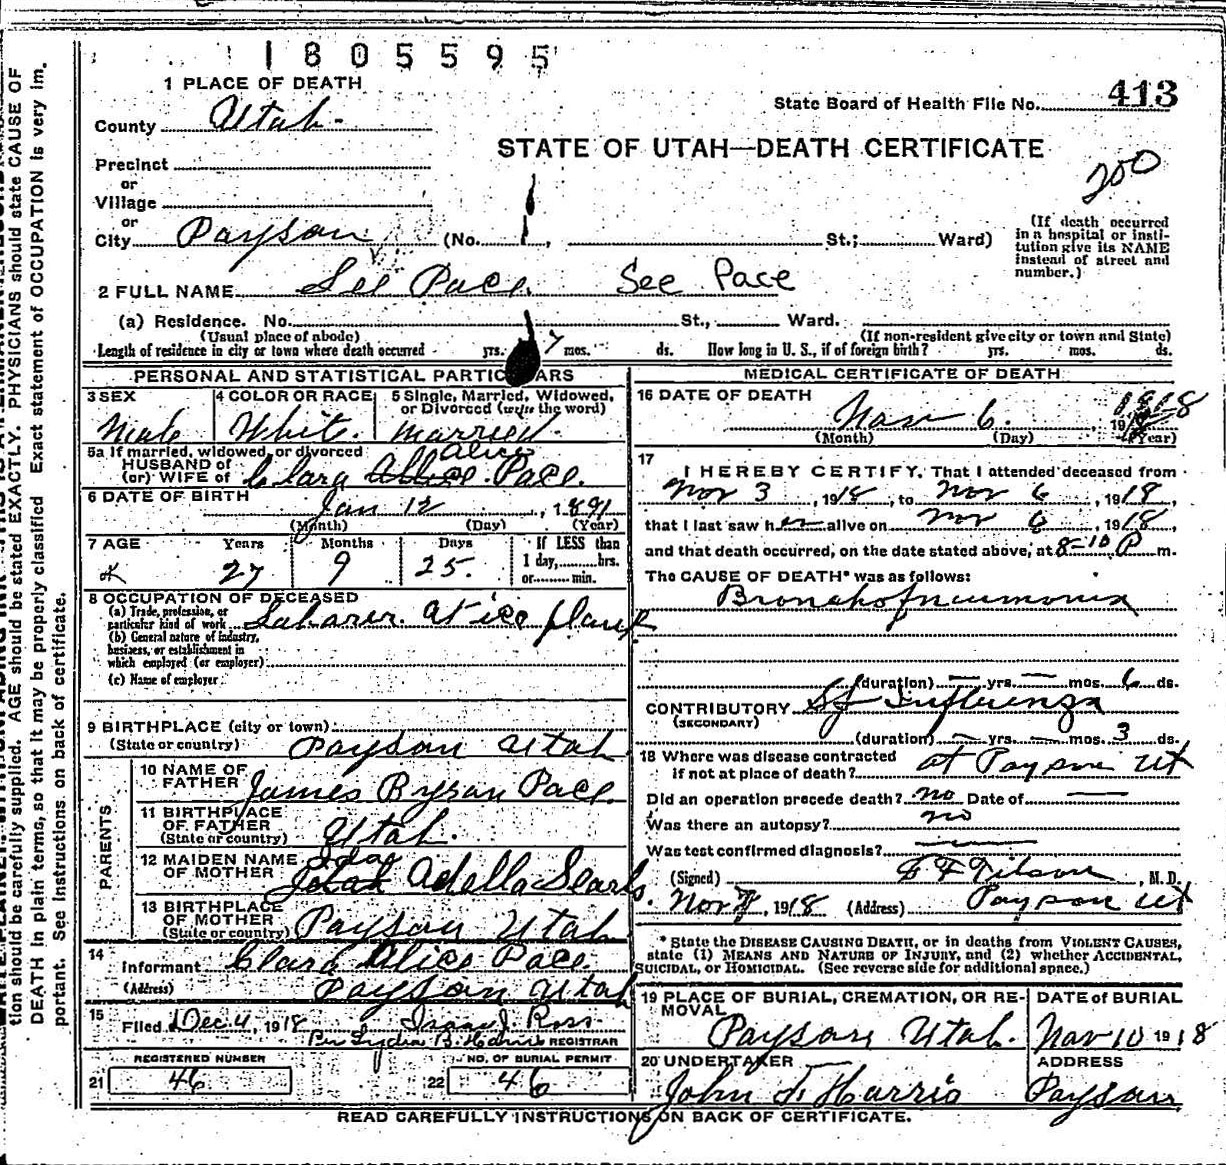 1805595
1 PLACE OF DEATH
State Board of Health File No. 413
County Utah
STATE OF UTAH—DEATH CERTIFICATE
Precinct
200
or
Village
or
City Payson (No. , St.; Ward)
(If death occurred in a hospital or institution give its NAME instead of street and number.)
2 FULL NAME See Pace See Pace
(a) Residence. No. St., Ward.
(Usual place of abode) (If non-resident give city or town and State)
Length of residence in city or town where death occurred yrs. 7 mos. ds. How long in U. S., if of foreign birth? yrs. mos. ds.
PERSONAL AND STATISTICAL PARTICULARS
3 SEX 4 COLOR OR RACE 5 Single, Married, Widowed, or Divorced (write the word)
Male White. married.
5a If married, widowed, or divorced
HUSBAND of
(or) WIFE of Clara Alice Pace.
6 DATE OF BIRTH Jan 12, 1891
(Month) (Day) (Year)
7 AGE Years Months Days If LESS than
27 9 25. 1 day, hrs.
or min.
8 OCCUPATION OF DECEASED
(a) Trade, profession, or particular kind of work Laborer at ice plant
(b) General nature of industry, business, or establishment in which employed (or employer)
(c) Name of employer
9 BIRTHPLACE (city or town)
(State or country) Payson Utah
PARENTS
10 NAME OF FATHER James Byran Pace.
11 BIRTHPLACE OF FATHER (State or country) Utah.
12 MAIDEN NAME OF MOTHER Ida Adella Searls.
13 BIRTHPLACE OF MOTHER (State or country) Payson Utah
14 Informant Clara Alice Pace.
(Address) Payson Utah
15 Filed Dec. 4, 1918 Isaac J. Ross
Per Lydia B. Harris REGISTRAR
REGISTERED NUMBER NO. OF BURIAL PERMIT
21 46 22 46
MEDICAL CERTIFICATE OF DEATH
16 DATE OF DEATH
Nov 6, 1918
(Month) (Day) (Year)
17 I HEREBY CERTIFY, That I attended deceased from
Nov 3, 1918, to Nov 6, 1918,
that I last saw h alive on Nov 6, 1918,
and that death occurred, on the date stated above, at 8-10 P m.
The CAUSE OF DEATH* was as follows:
Bronchopneumonia
(duration) — yrs. — mos. 6 ds.
CONTRIBUTORY Influenza
(SECONDARY)
(duration) — yrs. — mos. 3 ds.
18 Where was disease contracted
if not at place of death? at Payson Ut
Did an operation precede death? no Date of —
Was there an autopsy? no
Was test confirmed diagnosis? —
(Signed) , M. D.
Nov 7, 1918 (Address) Payson Ut
* State the DISEASE CAUSING DEATH, or in deaths from VIOLENT CAUSES,
state (1) MEANS AND NATURE OF INJURY, and (2) whether ACCIDENTAL,
SUICIDAL, or HOMICIDAL. (See reverse side for additional space.)
19 PLACE OF BURIAL, CREMATION, OR REMOVAL DATE of BURIAL
Payson Utah. Nov 10 1918
20 UNDERTAKER ADDRESS
John J. Harris Payson
READ CAREFULLY INSTRUCTIONS ON BACK OF CERTIFICATE.
tion should be carefully supplied. AGE should be stated EXACTLY. PHYSICIANS should state CAUSE OF
DEATH in plain terms, so that it may be properly classified Exact statement of OCCUPATION is very im.
portant. See Instructions. on back of certificate.